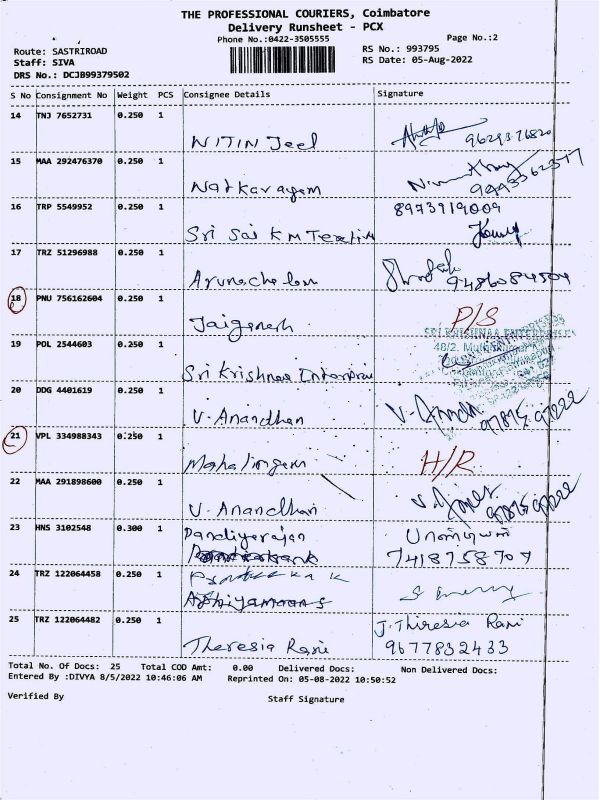 THE PROFESSIONAL COURIERS, Coimbatore
Delivery Runsheet - PCX
Phone No.:0422-3505555
Page No.:2
Route: SASTRIROAD
RS No.: 993795
Staff: SIVA
RS Date: 05-Aug-2022
DRS No.: DCJB99379502
S No Consignment No Weight PCS Consignee Details Signature
14 TNJ 7652731 0.250 1
NITIN Jeel 9629376820
15 MAA 292476370 0.250 1
Natkarayem 9993362377
16 TRP 5549952 0.250 1 8973919009
Sri Sai KM Textile
17 TRZ 51296988 0.250 1
Arunachalam 9486084504
18 PNU 756162604 0.250 1
Jaiganesh P/S
SRI KRISHNAA ENTERPRISES
19 POL 2544603 0.250 1 48/2.
Sri Krishnaa Enterprises
20 DDG 4401619 0.250 1
V. Anandhan 97875 97222
21 VPL 334988343 0.250 1
Mahalingam H/R
22 MAA 291898600 0.250 1
V. Anandhan 97875 97222
23 HNS 3102548 0.300 1 Pandiyarajan
7418758707
24 TRZ 122064458 0.250 1
25 TRZ 122064482 0.250 1 J. Thiresia Rani
Theresia Rani 9677832433
Total No. Of Docs: 25 Total COD Amt: 0.00 Delivered Docs: Non Delivered Docs:
Entered By :DIVYA 8/5/2022 10:46:06 AM Reprinted On: 05-08-2022 10:50:52
Verified By Staff Signature